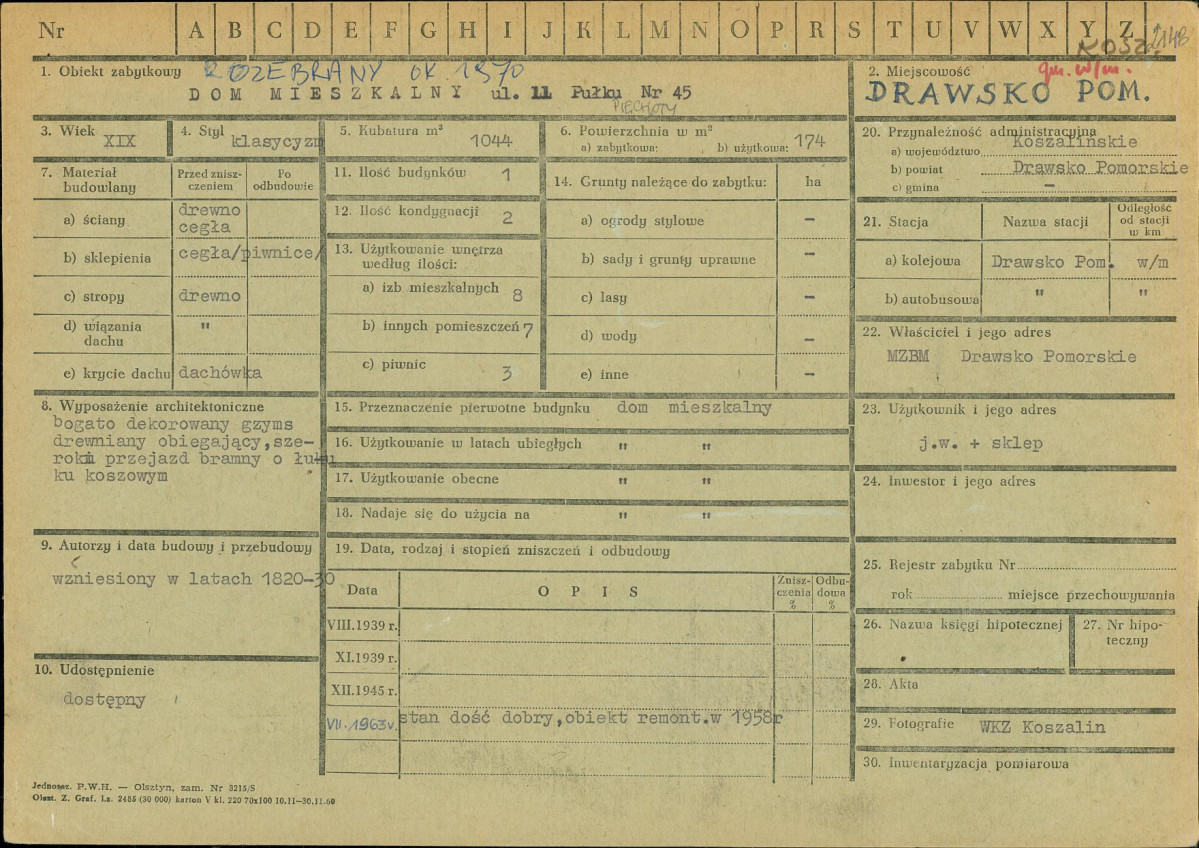 Nr A B C D E F G H I J K L M N O P R S T U V W X Y Z
KOSZ. 2148
1. Obiekt zabytkowy ROZEBRANY OK. 1970
DOM MIESZKALNY ul. 11 Pułku Nr 45
PIECHOTY
2. Miejscowość gm. w/m.
DRAWSKO POM.
3. Wiek
XIX
4. Styl
klasycyzm
5. Kubatura m³
1044
6. Powierzchnia w m²
a) zabytkowa: b) użytkowa: 174
7. Materiał budowlany
Przed zniszczeniem
Po odbudowie
a) ściany drewno
cegła
b) sklepienia cegła/piwnice/
c) stropy drewno
d) wiązania dachu "
e) krycie dachu dachówka
8. Wyposażenie architektoniczne
bogato dekorowany gzyms
drewniany obiegający,sze-
roki przejazd bramny o łuku
ku koszowym
9. Autorzy i data budowy i przebudowy
wzniesiony w latach 1820-30
10. Udostępnienie
dostępny
11. Ilość budynków 1
12. Ilość kondygnacji 2
13. Użytkowanie wnętrza
według ilości:
a) izb mieszkalnych 8
b) innych pomieszczeń 7
c) piwnic 3
14. Grunty należące do zabytku: ha
a) ogrody stylowe –
b) sady i grunty uprawne –
c) lasy –
d) wody –
e) inne –
15. Przeznaczenie pierwotne budynku dom mieszkalny
16. Użytkowanie w latach ubiegłych " "
17. Użytkowanie obecne " "
18. Nadaje się do użycia na " "
19. Data, rodzaj i stopień zniszczeń i odbudowy
Data OPIS Zniszczenia % Odbudowa %
VIII.1939 r.
XI.1939 r.
XII.1945 r.
VII.1963 r. stan dość dobry,obiekt remont.w 1958r
20. Przynależność administracyjna
a) województwo Koszalińskie
b) powiat Drawsko Pomorskie
c) gmina –
21. Stacja Nazwa stacji Odległość
od stacji
w km
a) kolejowa Drawsko Pom. w/m
b) autobusowa " "
22. Właściciel i jego adres
MZBM Drawsko Pomorskie
23. Użytkownik i jego adres
j.w. + sklep
24. Inwestor i jego adres
25. Rejestr zabytku Nr
rok miejsce przechowywania
26. Nazwa księgi hipotecznej
27. Nr hipoteczny
28. Akta
29. Fotografie WKZ Koszalin
30. Inwentaryzacja pomiarowa
Jednosz. P.W.H. — Olsztyn, zam. Nr 3215/S
Olszt. Z. Graf. Lz. 2485 (30 000) karton V kl. 220 70x100 10.11—30.11.60